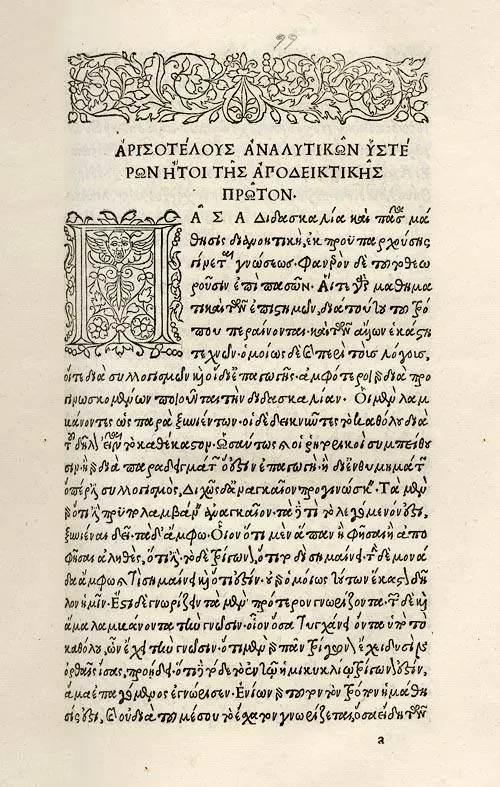 99
ἈΡΙΣΟΤΈΛΟΥΣ ἈΝΑΛΥΤΙΚΩ͂Ν ὙΣΤΈ
ΡΩΝ ἬΤΟΙ ΤΗ͂Σ ἈΠΟΔΕΙΚΤΙΚΗ͂Σ
ΠΡΩ͂ΤΟΝ·
ΠΑ͂ΣΑ Διδασκαλία καὶ πᾶσα μά
θησις διανοητικὴ, ἐκ προϋπαρχούσης
γίνεται γνώσεως· Φανερὸν δὲ τοῦτο θεω
ροῦσιν ἐπὶ πασῶν· Αἵτε γὰρ μαθημα
τικαὶ τῶν ἐπιστημῶν, διὰ τούτου τοῦ τρό
που περαίνονται· καὶ τῶν ἄλλων ἑκάστη
τεχνῶν· ὁμοίως δὲ καὶ περὶ τοὺς λόγους,
οἵτε διὰ συλλογισμῶν καὶ οἱ δι' ἐπαγωγῆς· ἀμφότεροι γὰρ διὰ προ
γινωσκομένων ποιοῦνται τὴν διδασκαλίαν· Οἱ μὲν λαμ
βάνοντες ὡς παρὰ ξυνιέντων· οἱ δὲ δεικνῦντες τὸ καθόλου διὰ
τοῦ δῆλον εἶναι τὸ καθέκαστον· Ὡσαύτως καὶ οἱ ῥητορικοὶ συμπείθου
σιν· ἢ γὰρ διὰ παραδειγμάτων ὅ ἐστιν ἐπαγωγὴ· ἢ δι' ἐνθυμημάτων
ὅπερ ἐστὶ συλλογισμός, Διχῶς δ' ἀναγκαῖον προγινώσκειν· Τὰ μὲν
γὰρ ὅτι ἔστι προϋπολαμβάνειν ἀναγκαῖον· τὰ δὲ τί τὸ λεγόμενόν ἐστι,
ξυνιέναι δεῖ· τὰ δ' ἄμφω· Οἷον ὅτι μὲν ἅπαν ἢ φῆσαι ἢ ἀπο
φῆσαι ἀληθὲς, ὅτι ἔστι· τὸ δὲ τρίγωνον, ὅτι τοδὶ σημαίνει· τὴν δὲ μονά
δα ἄμφω καὶ τί σημαίνει καὶ ὅτι ἔστιν· οὐ γὰρ ὁμοίως τούτων ἕκαστον δῆ
λον ἡμῖν· Ἔστι δὲ γνωρίζειν τὰ μὲν πρότερον γνωρίζοντα· τῶν δὲ καὶ
ἅμα λαμβάνοντα τὴν γνῶσιν· οἷον ὅσα τυγχάνει ὄντα ὑπὸ τὸ
καθόλου, ὧν ἔχει τὴν γνῶσιν· ὅτι μὲν γὰρ πᾶν τρίγωνον ἔχει δυσὶν
ὀρθαῖς ἴσας, προῄδει· ὅτι δὲ τόδε τὸ ἐν τῷ ἡμικυκλίῳ τρίγωνόν ἐστιν,
ἅμα ἐπαγόμενος ἐγνώρισεν· Ἐνίων γὰρ τοῦτον τὸν τρόπον ἡ μάθη
σίς ἐστι, καὶ οὐ διὰ τοῦ μέσου τὸ ἔσχατον γνωρίζεται, ὅσα ἤδη τῶν
a